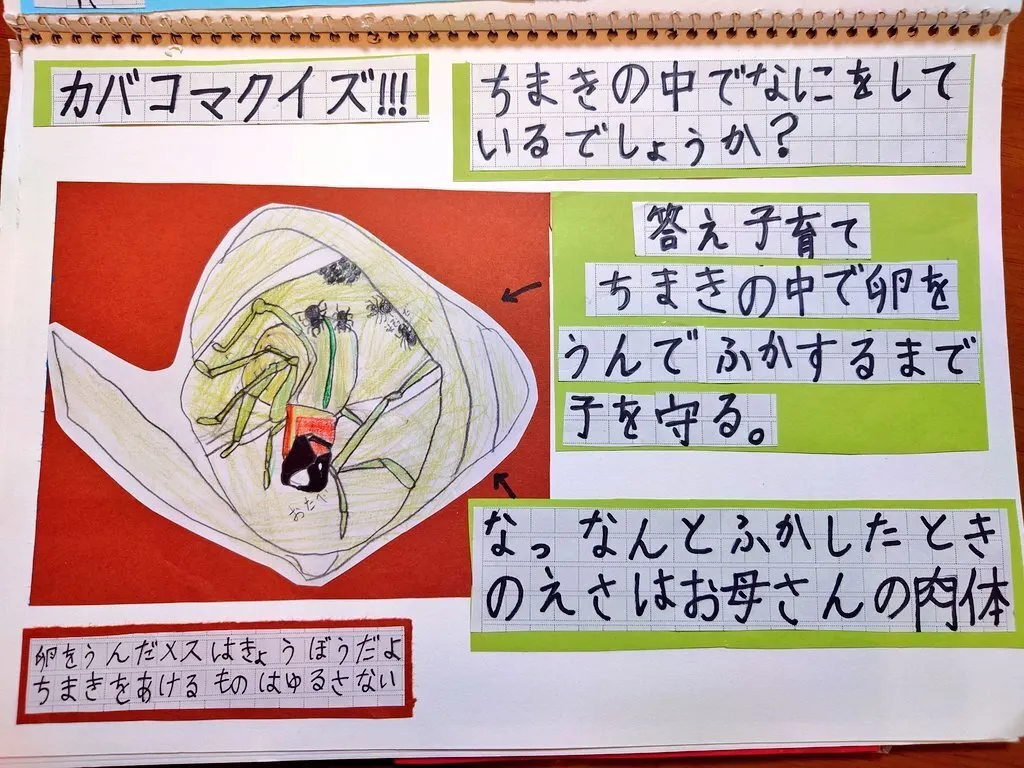 カバコマクイズ!!!
ちまきの中でなにをして
いるでしょうか?
答え子育て
ちまきの中で卵を
うんでふかするまで
子を守る。
なっなんとふかしたとき
のえさはお母さんの肉体
卵をうんだメスはきょうぼうだよ
ちまきをあけるものはゆるさない